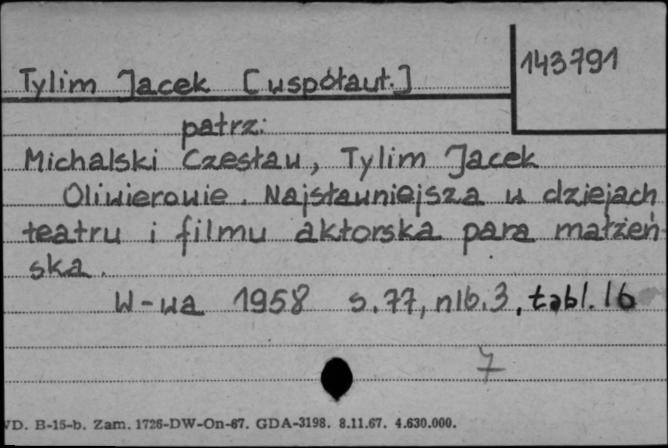 Tylim Jacek [współaut.]
143791
patrz:
Michalski Czesław, Tylim Jacek
Oliwierowie. Najsławniejsza w dziejach
teatru i filmu aktorska para małżeń-
ska.
W-wa 1958 s. 77, nlb. 3, tabl. 16
7
D. B-15-b. Zam. 1726-DW-On-67. GDA-3198. 8.11.67. 4.630.000.